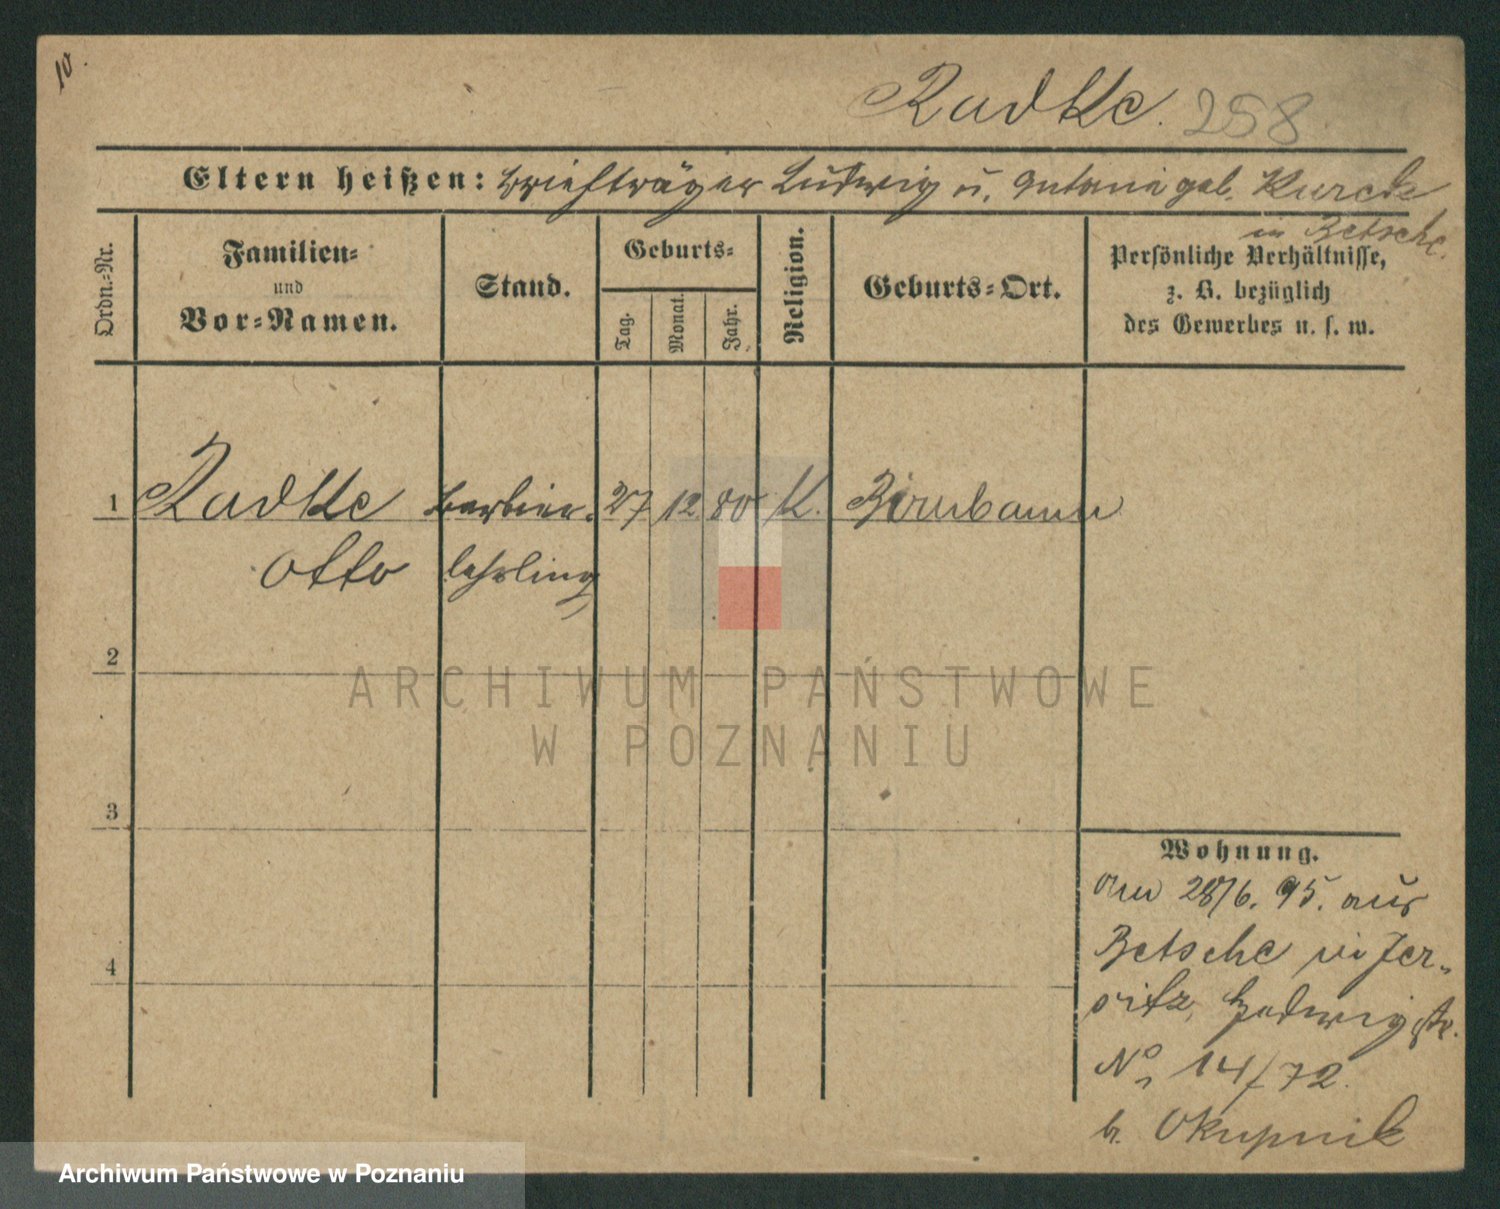 10.
Radtke. 258
Eltern heißen: Briefträger Ludwig u. Antonie geb. Kurek
in Betsche.
Ordn.-Nr.
Familien-
und
Vor-Namen.
Stand.
Geburts-
Tag.
Monat.
Jahr.
Religion.
Geburts-Ort.
Persönliche Verhältnisse,
z. B. bezüglich
des Gewerbes u. s. w.
1 Radtke Barbier- 27 12. 80 K. Birnbaum
Otto lehrling
2
ARCHIWUM PAŃSTWOWE
W POZNANIU
3
Wohnung.
am 28/6. 95. aus
Betsche in Jer-
4
sitz, Hedwigstr.
No 14/72.
b. Okupnik
Archiwum Państwowe w Poznaniu